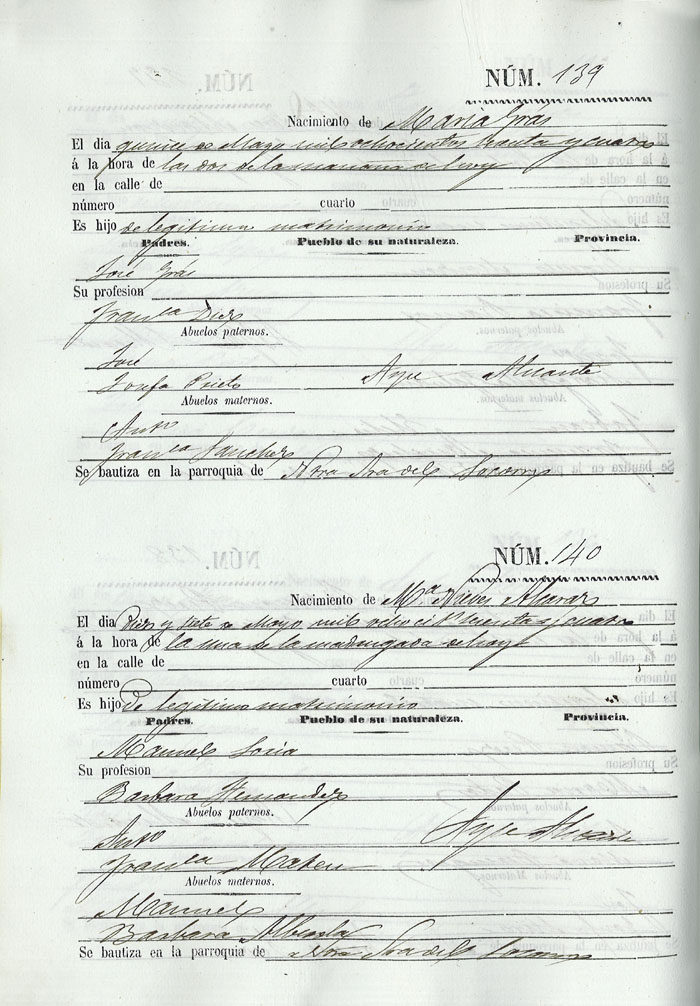 NÚM. 139
Nacimiento de Maria Gras
El dia quince de Mayo mil ochocientos treinta y cuatro
á la hora de las dos de la mañana del hoy
en la calle de
número cuarto
Es hijo de legitimo matrimonio
Padres. Pueblo de su naturaleza. Provincia.
José Gras
Su profesion
Franca Diez
Abuelos paternos.
José
Josefa Prieto Aspe Alicante
Abuelos maternos.
Anto
Franca Sanchez
Se bautiza en la parroquia de Ntra Sra del Socorro
NÚM. 140
Nacimiento de Ma Nieves
El dia Diez y siete de Mayo mil ocho treinta y cuatro
á la hora de la una de la madrugada del hoy
en la calle de
número cuarto
Es hijo de legitimo matrimonio
Padres. Pueblo de su naturaleza. Provincia.
Manuel Soria
Su profesion
Barbara Hernandez
Abuelos paternos.
Anto Aspe Alicante
Franca Mateu
Abuelos maternos.
Manuel
Barbara
Se bautiza en la parroquia de Ntra Sra del Socorro